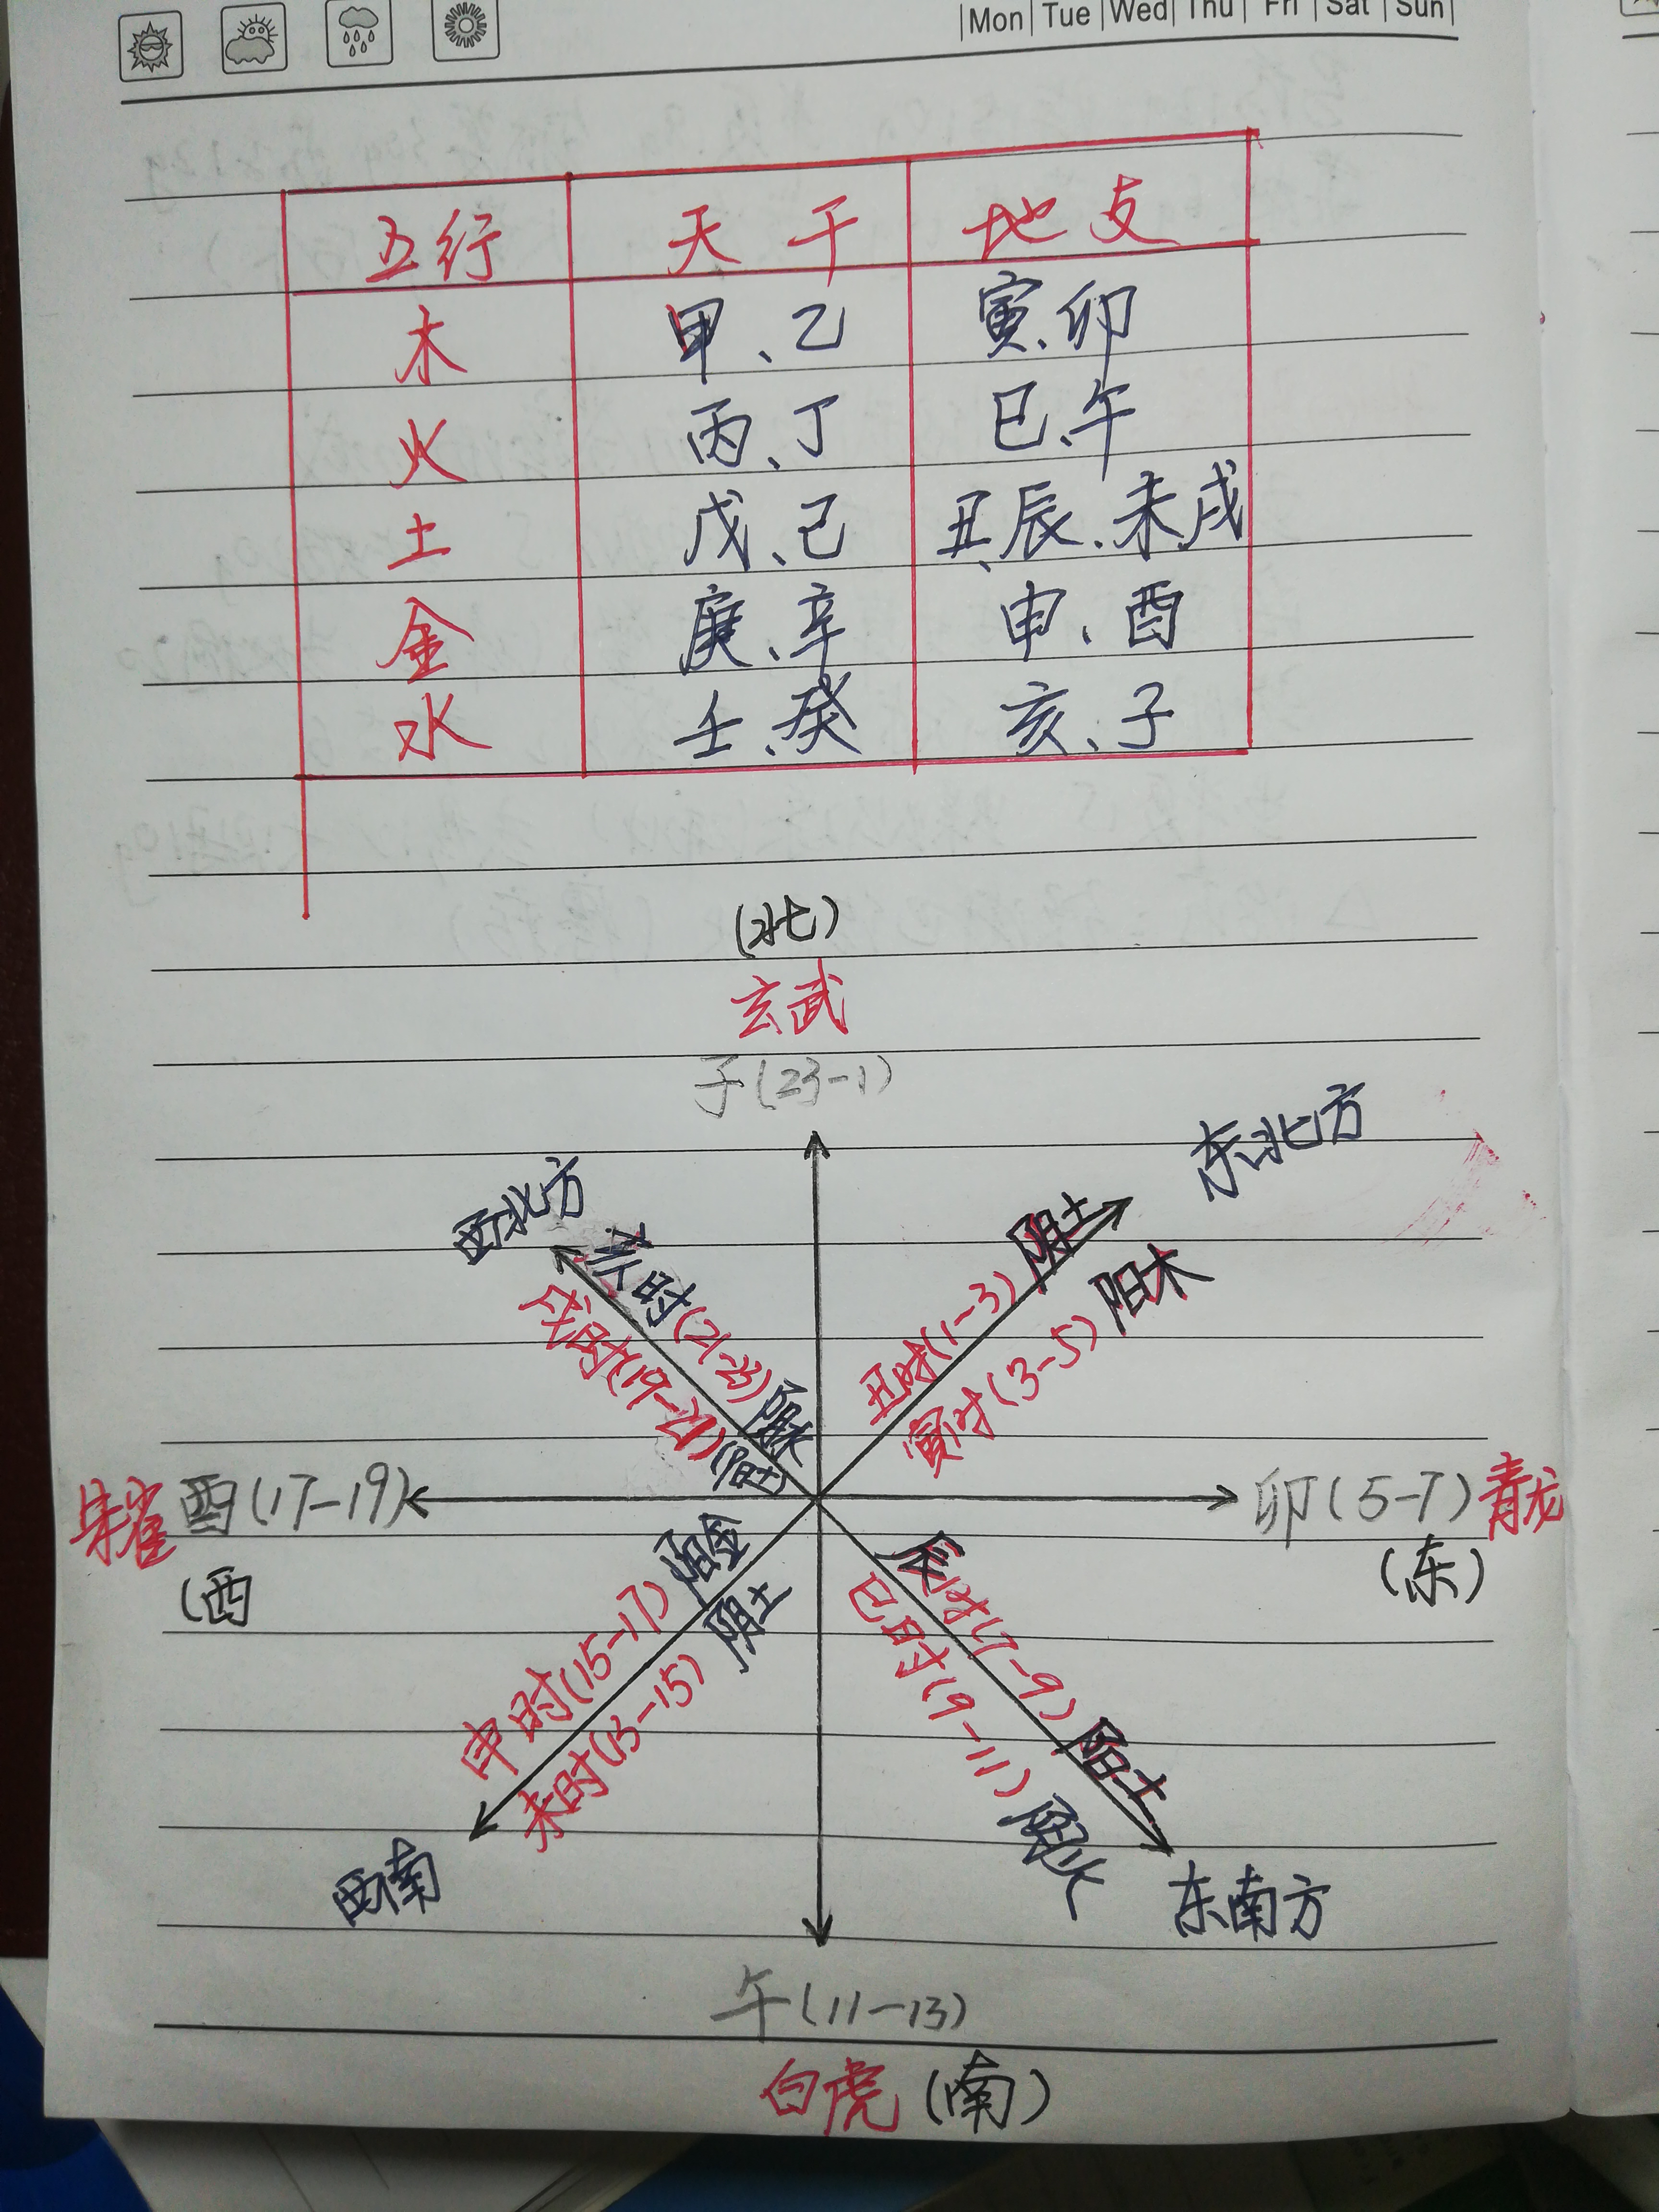 Mon Tue Wed Thu Fri Sat Sun
五行 天干 地支
木 甲、乙 寅、卯
火 丙、丁 巳、午
土 戊、己 丑、辰、未、戌
金 庚、辛 申、酉
水 壬、癸 亥、子
(北)
玄武
子(23-1)
西北方
东北方
亥时(21-23)
戌时(19-21)(阳土
丑时(1-3)阴土
寅时(3-5)阳木
朱雀 酉(17-19)
(西
卯(5-7)青龙
(东)
申时(15-17)阳金
未时(13-15)阴土
辰时(7-9)阳土
巳时(9-11)阴火
西南
东南方
午(11-13)
白虎(南)